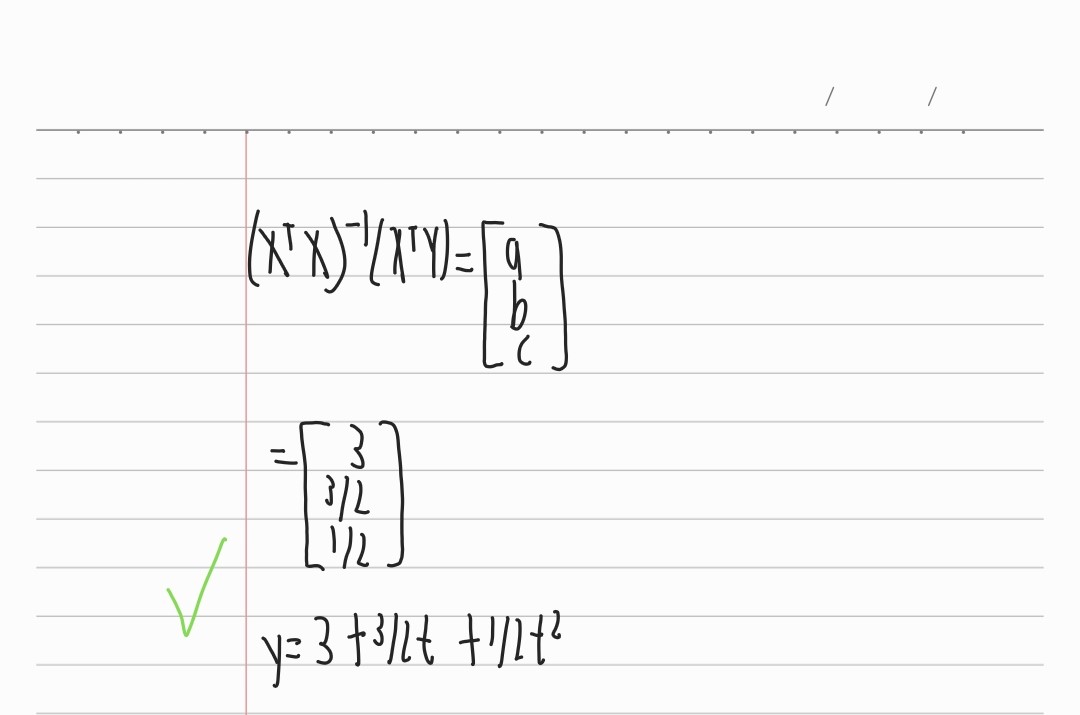 (XᵀX)⁻¹(XᵀY) = [a
b
c]
= [3
3/2
1/2]
y = 3 + 3/2t + 1/2t²